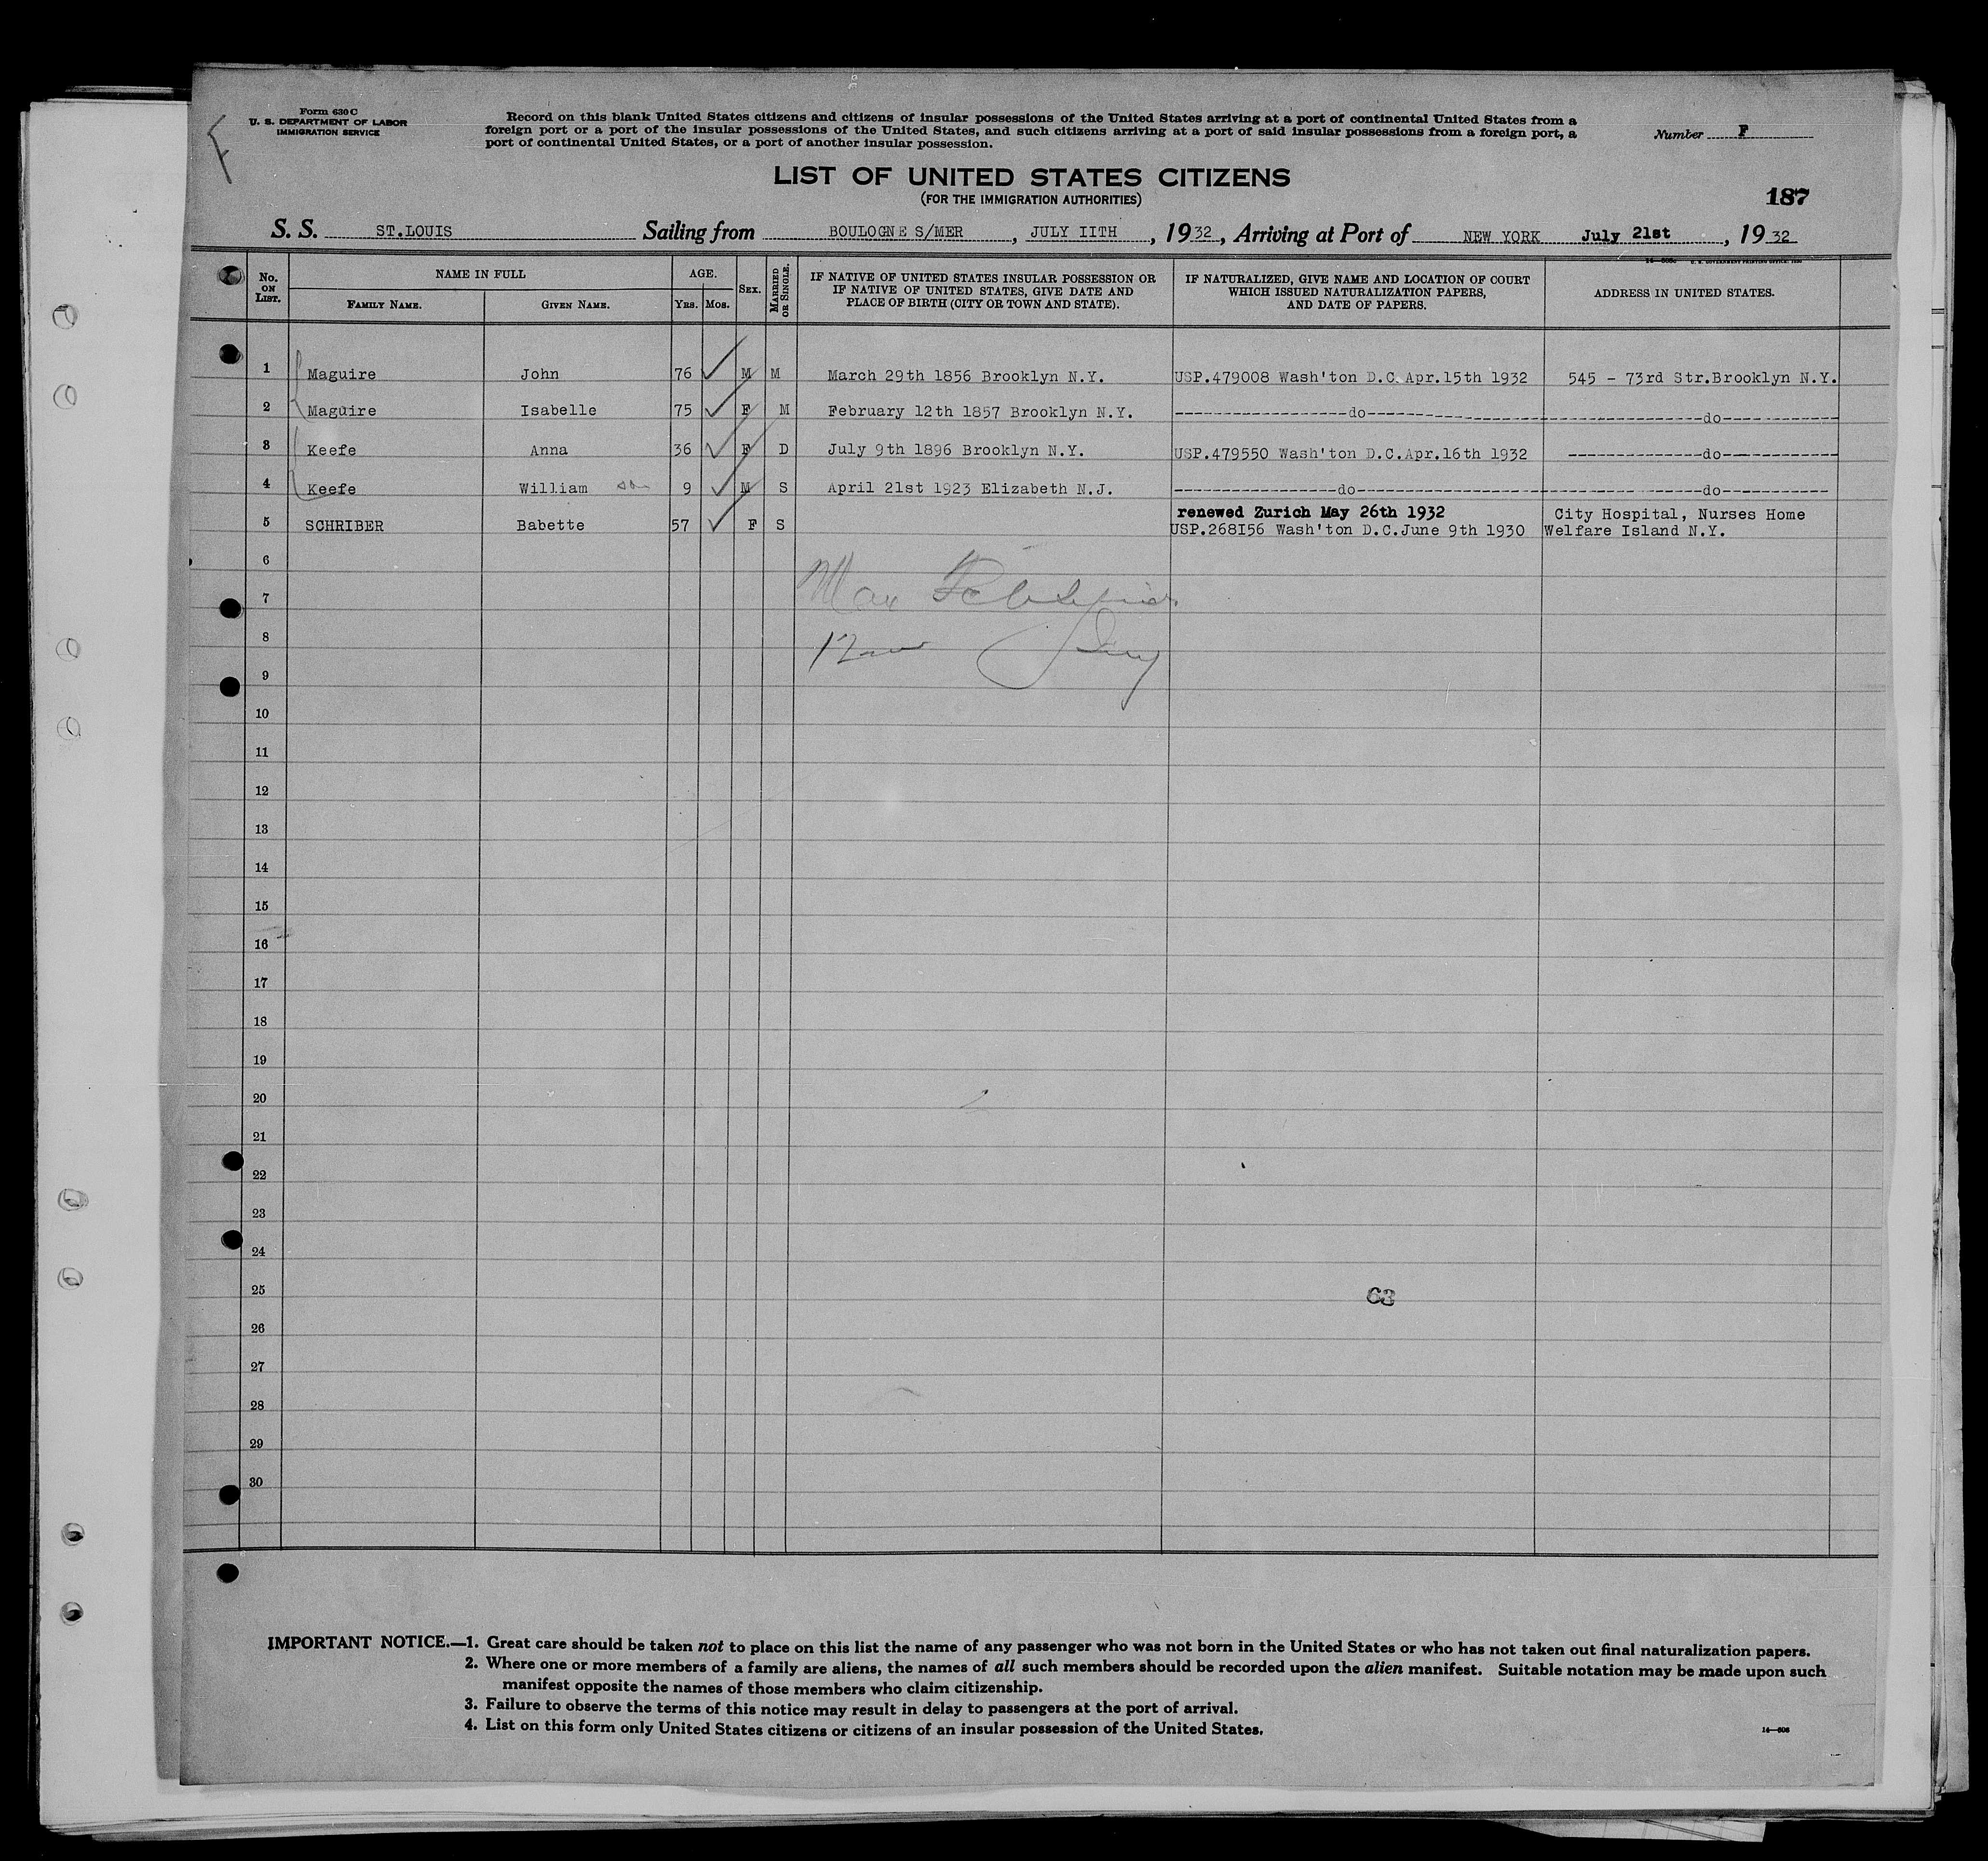 Form 630 C
U. S. DEPARTMENT OF LABOR
IMMIGRATION SERVICE
Record on this blank United States citizens and citizens of insular possessions of the United States arriving at a port of continental United States from a
foreign port or a port of the insular possessions of the United States, and such citizens arriving at a port of said insular possessions from a foreign port, a
port of continental United States, or a port of another insular possession.
Number F
LIST OF UNITED STATES CITIZENS
(FOR THE IMMIGRATION AUTHORITIES)
187
S. S. ST.LOUIS Sailing from BOULOGNE S/MER, JULY IITH, 1932, Arriving at Port of NEW YORK July 21st, 1932
No. ON LIST. NAME IN FULL AGE. SEX. MARRIED OR SINGLE. IF NATIVE OF UNITED STATES INSULAR POSSESSION OR IF NATIVE OF UNITED STATES, GIVE DATE AND PLACE OF BIRTH (CITY OR TOWN AND STATE). IF NATURALIZED, GIVE NAME AND LOCATION OF COURT WHICH ISSUED NATURALIZATION PAPERS, AND DATE OF PAPERS. ADDRESS IN UNITED STATES.
FAMILY NAME. GIVEN NAME. YRS. MOS.
1 Maguire John 76 M M March 29th 1856 Brooklyn N.Y. USP.479008 Wash'ton D.C.Apr.15th 1932 545 - 73rd Str.Brooklyn N.Y.
2 Maguire Isabelle 75 F M February 12th 1857 Brooklyn N.Y. ------do------ ------do------
3 Keefe Anna 36 F D July 9th 1896 Brooklyn N.Y. USP.479550 Wash'ton D.C.Apr.16th 1932 ------do------
4 Keefe William son 9 M S April 21st 1923 Elizabeth N.J. ------do------ ------do------
renewed Zurich May 26th 1932 City Hospital, Nurses Home
5 SCHRIBER Babette 57 F S USP.268I56 Wash'ton D.C.June 9th 1930 Welfare Island N.Y.
6
7 Max
8
9
10
11
12
13
14
15
16
17
18
19
20
21
22
23
24
25
63
26
27
28
29
30
IMPORTANT NOTICE.—1. Great care should be taken not to place on this list the name of any passenger who was not born in the United States or who has not taken out final naturalization papers.
2. Where one or more members of a family are aliens, the names of all such members should be recorded upon the alien manifest. Suitable notation may be made upon such
manifest opposite the names of those members who claim citizenship.
3. Failure to observe the terms of this notice may result in delay to passengers at the port of arrival.
4. List on this form only United States citizens or citizens of an insular possession of the United States.